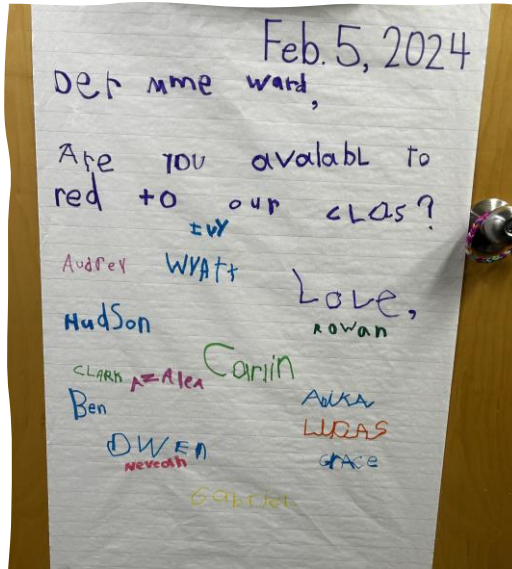 Feb. 5, 2024
Der mme ward,
Are you avalabL to
red to our cLas?
IvY
Audrey WYAtt
Love,
HudSon
ROwan
Carlin
CLARK AzAleA
Ben
AnikA
LUCAS
OWEn
GrAce
Neveah
Gabriel